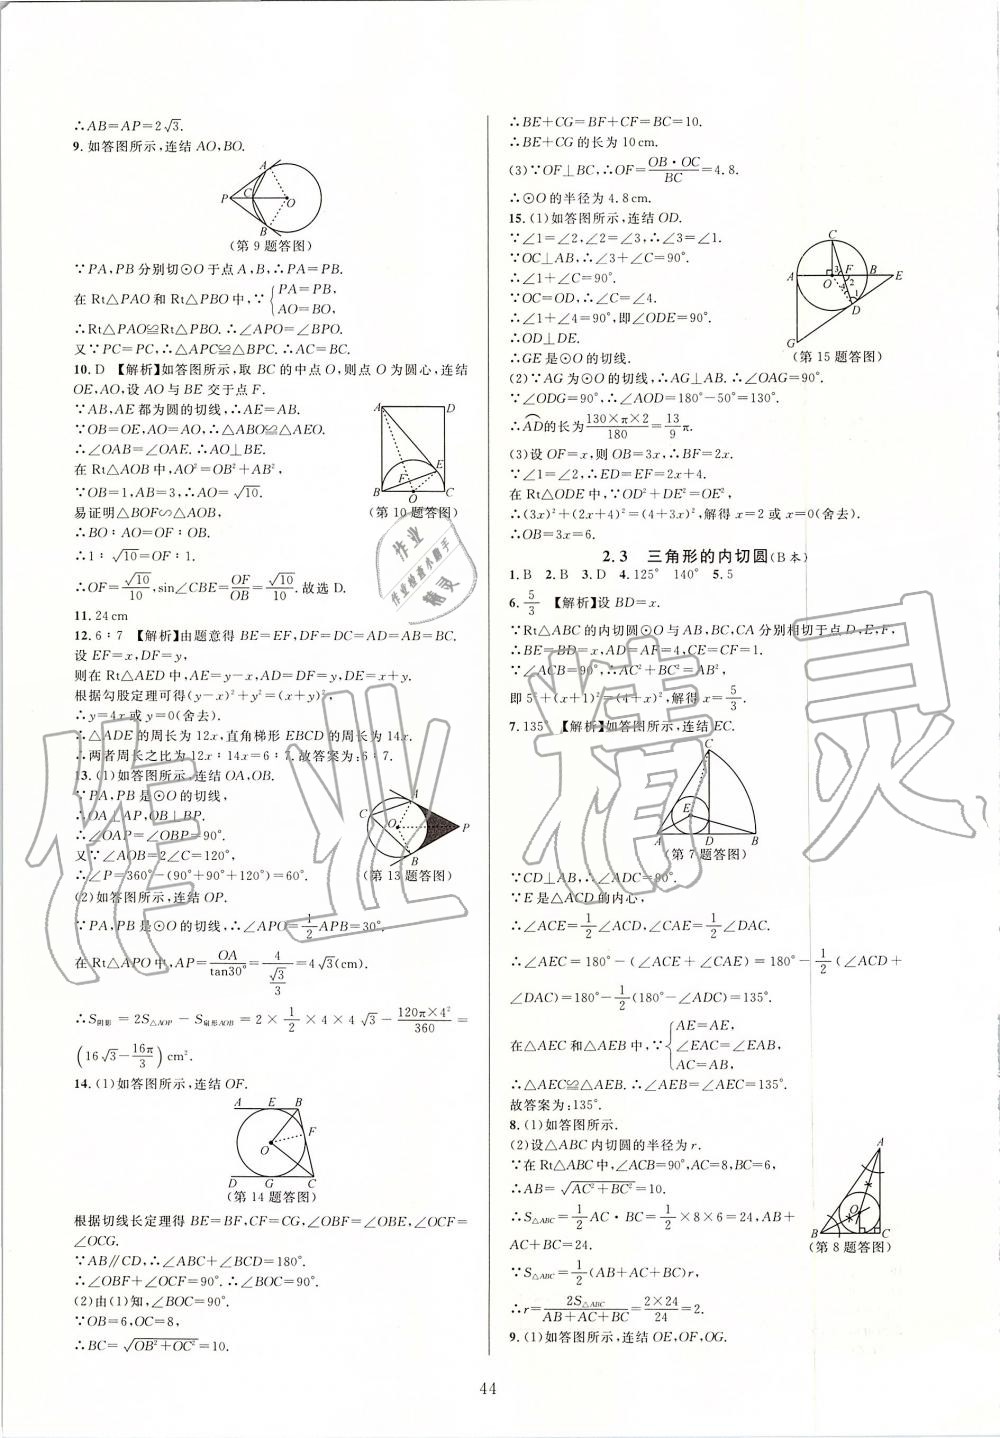 ∴AB=AP=2√3.
9. 如答图所示,连结AO,BO.
A
P C O
B
(第9题答图)
∵PA,PB分别切⊙O于点A,B,∴PA=PB.
在Rt△PAO和Rt△PBO中,∵{PA=PB, AO=BO,
∴Rt△PAO≌Rt△PBO. ∴∠APO=∠BPO.
又∵PC=PC,∴△APC≌△BPC. ∴AC=BC.
10. D 【解析】如答图所示,取BC的中点O,则点O为圆心,连结
OE,AO,设AO与BE交于点F.
∵AB,AE都为圆的切线,∴AE=AB.
∵OB=OE,AO=AO,∴△ABO≌△AEO.
∴∠OAB=∠OAE. ∴AO⊥BE.
在Rt△AOB中,AO²=OB²+AB²,
∵OB=1,AB=3,∴AO=√10.
易证明△BOF∽△AOB,
∴BO∶AO=OF∶OB.
∴1∶√10=OF∶1.
∴OF=√10/10,sin∠CBE=OF/OB=√10/10.故选D.
A D
E
F
B O C
(第10题答图)
11. 24cm
12. 6∶7 【解析】由题意得BE=EF,DF=DC=AD=AB=BC.
设EF=x,DF=y,
则在Rt△AED中,AE=y-x,AD=y,DE=x+y.
根据勾股定理可得(y-x)²+y²=(x+y)²,
∴y=4x或y=0(舍去).
∴△ADE的周长为12x,直角梯形EBCD的周长为14x.
∴两者周长之比为12x∶14x=6∶7.故答案为:6∶7.
13. (1)如答图所示,连结OA,OB.
∵PA,PB是⊙O的切线,
∴OA⊥AP,OB⊥BP.
∴∠OAP=∠OBP=90°.
又∵∠AOB=2∠C=120°,
∴∠P=360°-(90°+90°+120°)=60°.
A
C O P
B
(第13题答图)
(2)如答图所示,连结OP.
∵PA,PB是⊙O的切线,∴∠APO=1/2∠APB=30°.
在Rt△APO中,AP=OA/tan30°=4/(√3/3)=4√3(cm).
∴S阴影=2S△AOP-S扇形AOB=2×1/2×4×4√3-120π×4²/360=
(16√3-16π/3)cm².
14. (1)如答图所示,连结OF.
A E B
F
O
D G C
(第14题答图)
根据切线长定理得BE=BF,CF=CG,∠OBF=∠OBE,∠OCF=
∠OCG.
∵AB∥CD,∴∠ABC+∠BCD=180°.
∴∠OBF+∠OCF=90°.∴∠BOC=90°.
(2)由(1)知,∠BOC=90°.
∵OB=6,OC=8,
∴BC=√(OB²+OC²)=10.
∴BE+CG=BF+CF=BC=10.
∴BE+CG的长为10cm.
(3)∵OF⊥BC,∴OF=OB·OC/BC=4.8.
∴⊙O的半径为4.8cm.
15. (1)如答图所示,连结OD.
∵∠1=∠2,∠2=∠3,∴∠3=∠1.
∵OC⊥AB,∴∠3+∠C=90°.
∴∠1+∠C=90°.
∵OC=OD,∴∠C=∠4.
∴∠1+∠4=90°,即∠ODE=90°.
∴OD⊥DE.
∴GE是⊙O的切线.
C
A O 3 F B E
2
4 1
D
G
(第15题答图)
(2)∵AG为⊙O的切线,∴AG⊥AB.∴∠OAG=90°.
∵∠ODG=90°,∴∠AOD=180°-50°=130°.
∴AD的长为130×π×2/180=13/9π.
(3)设OF=x,则OB=3x,∴BF=2x.
∵∠1=∠2,∴ED=EF=2x+4.
在Rt△ODE中,∵OD²+DE²=OE²,
∴(3x)²+(2x+4)²=(4+3x)²,解得x=2或x=0(舍去).
∴OB=3x=6.
2.3 三角形的内切圆(B本)
1. B 2. B 3. D 4. 125° 140° 5. 5
6. 5/3 【解析】设BD=x.
∵Rt△ABC的内切圆⊙O与AB,BC,CA分别相切于点D,E,F,
∴BE=BD=x,AD=AF=4,CE=CF=1.
∵∠ACB=90°,∴AC²+BC²=AB²,
即5²+(x+1)²=(4+x)²,解得x=5/3.
7. 135° 【解析】如答图所示,连结EC.
C
E
A D B
(第7题答图)
∵CD⊥AB,∴∠ADC=90°.
∵E是△ACD的内心,
∴∠ACE=1/2∠ACD,∠CAE=1/2∠DAC.
∴∠AEC=180°-(∠ACE+∠CAE)=180°-1/2(∠ACD+
∠DAC)=180°-1/2(180°-∠ADC)=135°.
在△AEC和△AEB中,∵{AE=AE, ∠EAC=∠EAB, AC=AB,
∴△AEC≌△AEB.∴∠AEB=∠AEC=135°.
故答案为:135°.
8. (1)如答图所示.
(2)设△ABC内切圆的半径为r.
∵在Rt△ABC中,∠ACB=90°,AC=8,BC=6,
∴AB=√(AC²+BC²)=10.
∴S△ABC=1/2AC·BC=1/2×8×6=24,AB+
AC+BC=24.
∵S△ABC=1/2(AB+AC+BC)r,
∴r=2S△ABC/(AB+AC+BC)=2×24/24=2.
A
O
B C
(第8题答图)
9. (1)如答图所示,连结OE,OF,OG.
44
作业精灵
作业
作业检查小助手
精灵